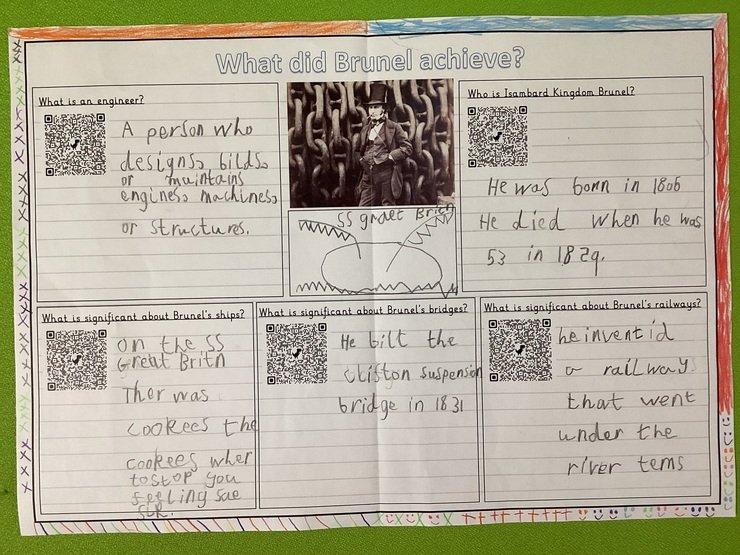 What did Brunel achieve?
What is an engineer?
A person who
designs, bilds,
or muintains
engines, machines,
or structures.
SS graet Britn
Who is Isambard Kingdom Brunel?
He was bonn in 1806
He died when he was
53 in 1829.
What is significant about Brunel's ships?
on the SS
Great Britn
Ther was
cookees the
cookees wher
to stop you
feeling sae
sik.
What is significant about Brunel's bridges?
He bilt the
clifton suspension
bridge in 1831
What is significant about Brunel's railways?
he invent id
a railways
that went
under the
river tems